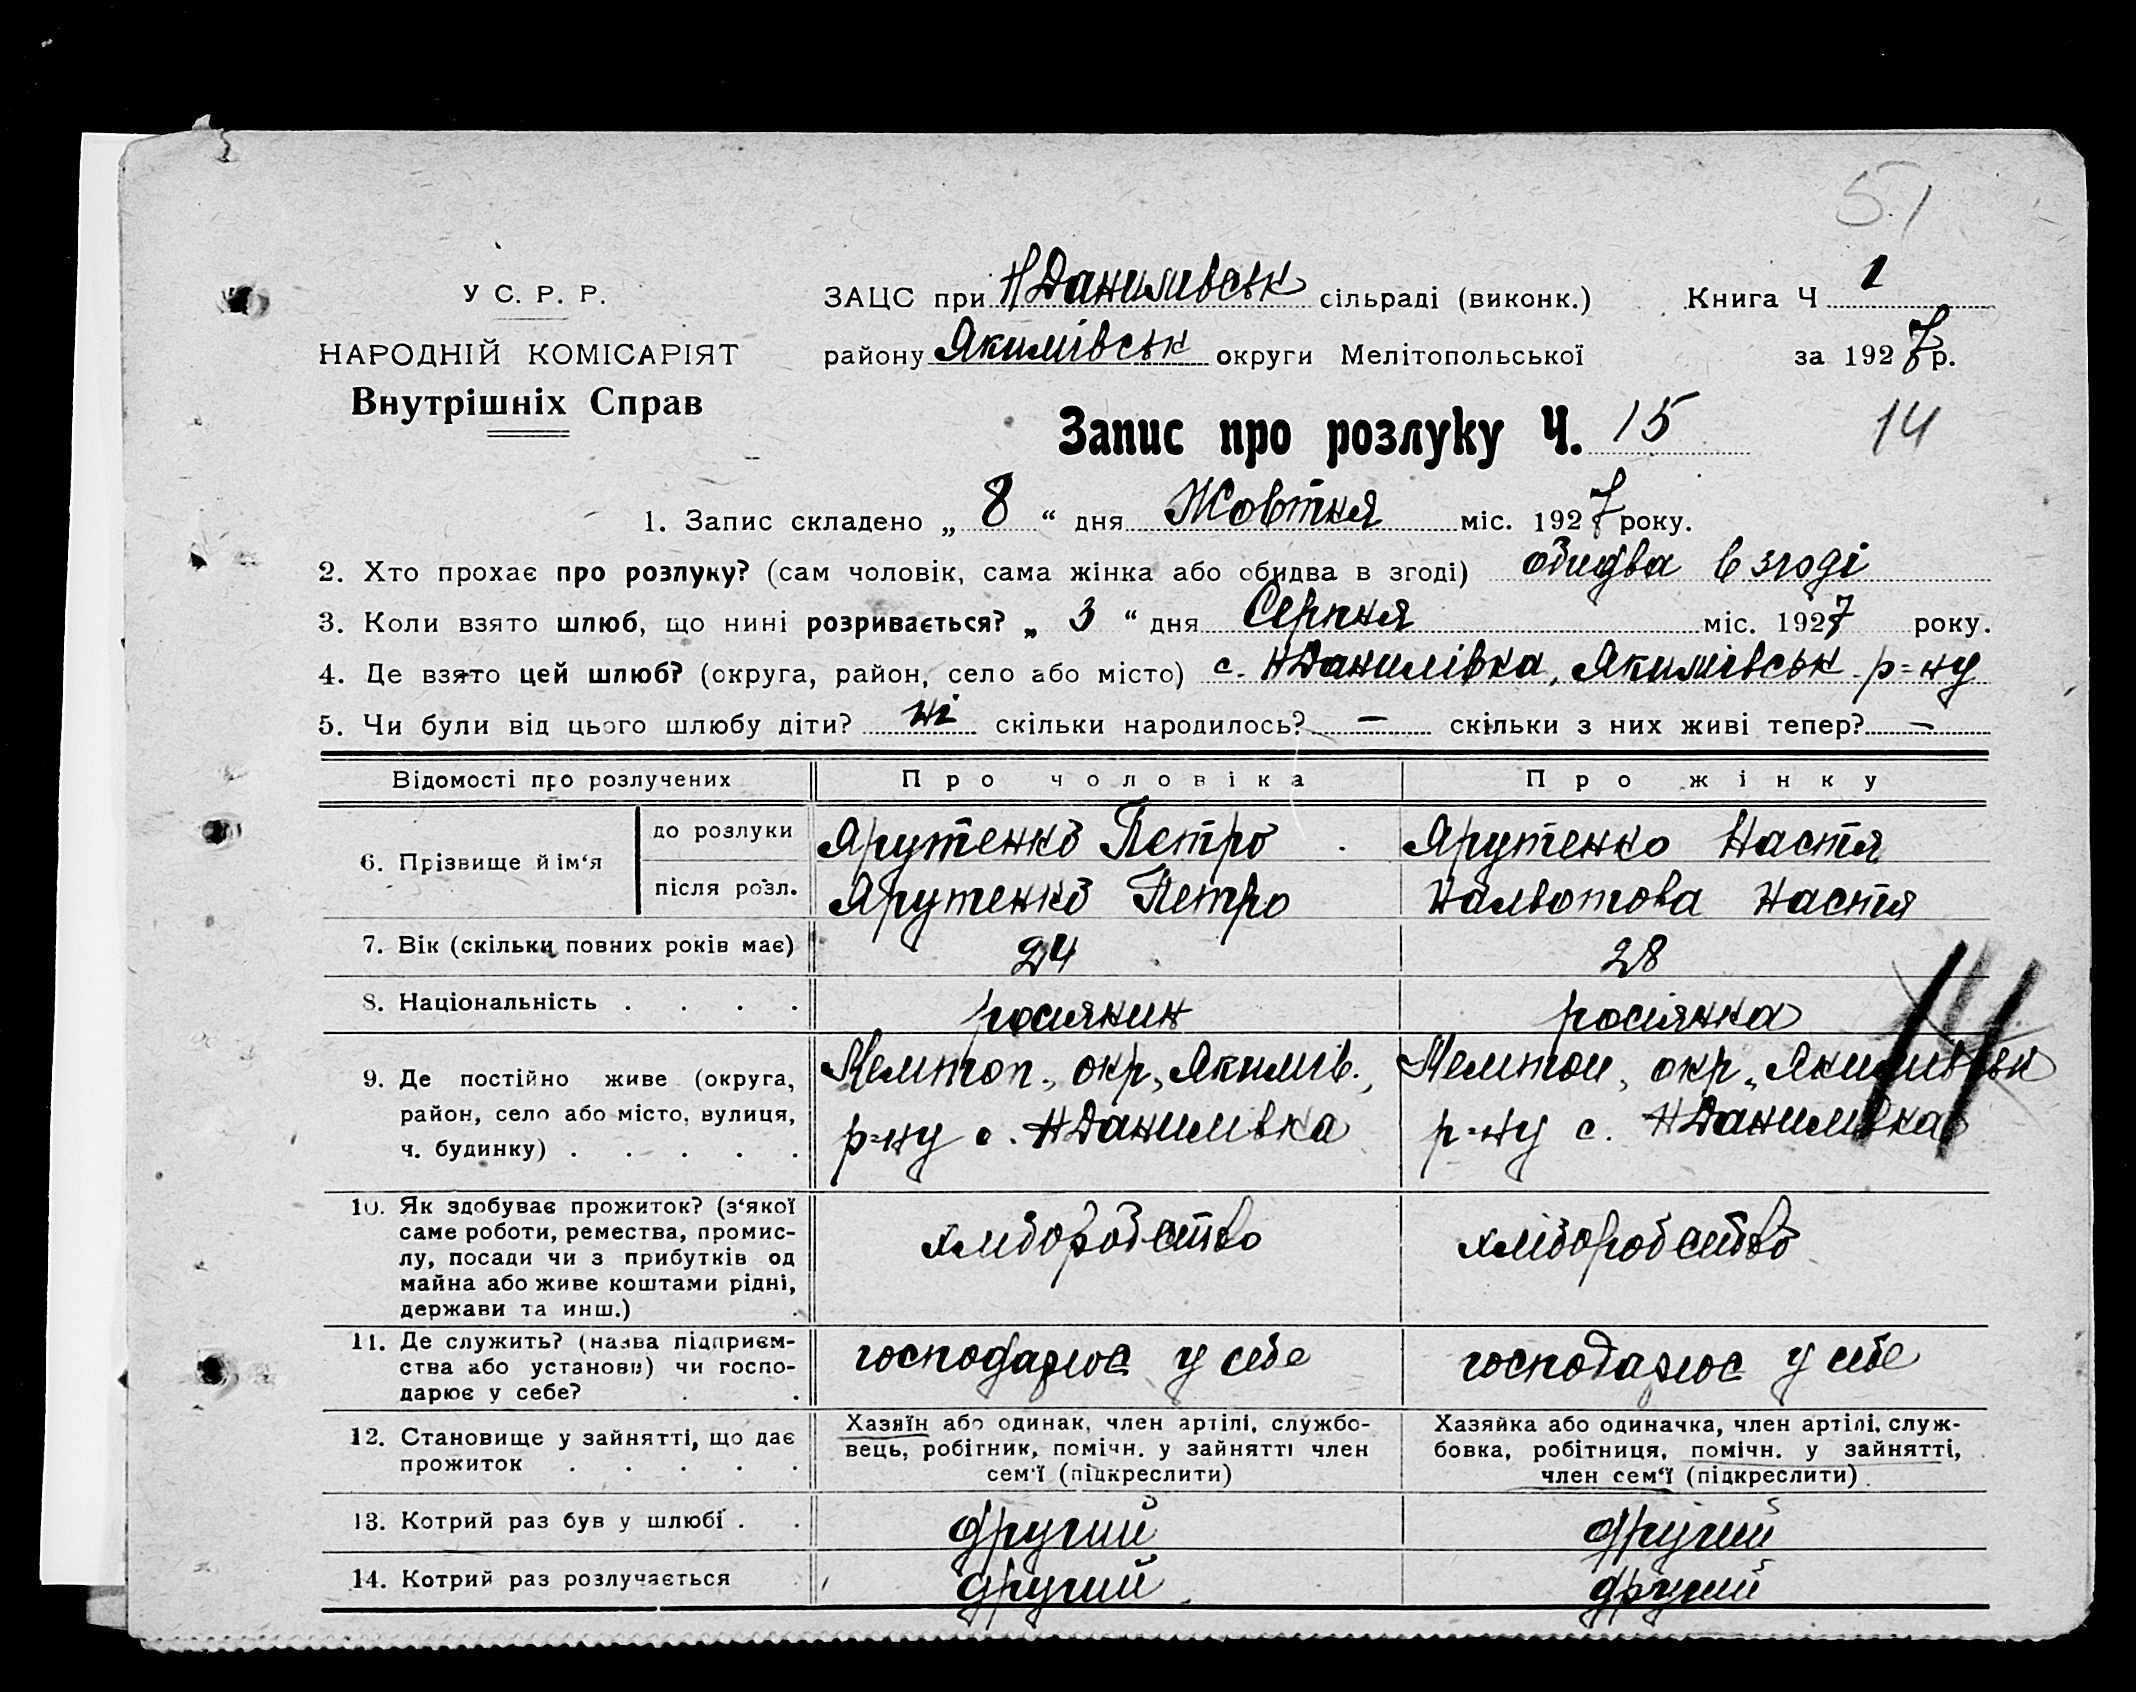 51
У С. Р. Р.
НАРОДНІЙ КОМІСАРІЯТ
Внутрішніх Справ
ЗАЦС при Н Данилівськ сільраді (виконк.) Книга Ч 1
району Якимівськ округи Мелітопольської за 1927 р.
Запис про розлуку Ч. 15 14
1. Запис складено „ 8 “ дня Жовтня міс. 1927 року.
2. Хто прохає про розлуку? (сам чоловік, сама жінка або обидва в згоді) обидва в згоді
3. Коли взято шлюб, що нині розривається? „ 3 “ дня Серпня міс. 1927 року.
4. Де взято цей шлюб? (округа, район, село або місто) с. Н Данилівка, Якимівськ р-ну
5. Чи були від цього шлюбу діти? ні скільки народилось? — скільки з них живі тепер? —
Відомості про розлучених Про чоловіка Про жінку
6. Прізвище й ім‘я
до розлуки Ярутенко Петро Ярутенко Настя
після розл. Ярутенко Петро Настя
7. Вік (скільки повних років має) 24 28
8. Національність росіянин росіянка
9. Де постійно живе (округа, район, село або місто, вулиця, ч. будинку)
Мелітоп. окр., Якимів., р-ну с. Н Данилівка
окр., Якимівськ р-ну с. Н Данилівка
10. Як здобуває прожиток? (з‘якої
саме роботи, ремества, промис-
лу, посади чи з прибутків од
майна або живе коштами рідні,
держави та инш.)
хліборобство хліборобство
11. Де служить? (назва підприєм-
ства або установи) чи госпо-
дарює у себе?
господарює у себе господарює у себе
12. Становище у зайнятті, що дає
прожиток
Хазяїн або одинак, член артілі, службо-
вець, робітник, помічн. у зайнятті член
сем‘ї (підкреслити)
Хазяйка або одиначка, член артілі, служ-
бовка, робітниця, помічн. у зайнятті,
член сем‘ї (підкреслити)
13. Котрий раз був у шлюбі другий другий
14. Котрий раз розлучається другий другий